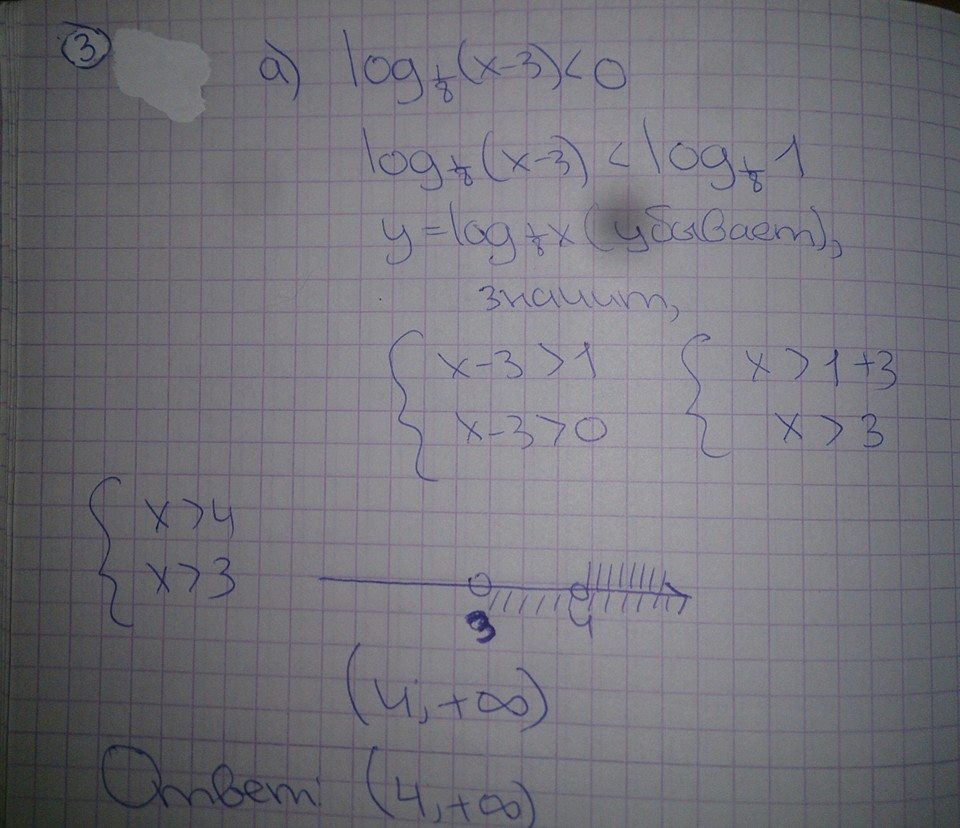 ③ а) log_{1/8}(x-3)<0
log_{1/8}(x-3) < log_{1/8} 1
y=log_{1/8} x (убывает),
значит,
{ x-3 >1 { x > 1+3
x-3>0 x > 3
{ x>4
x>3
3 4
(4; +∞)
Ответ: (4; +∞)